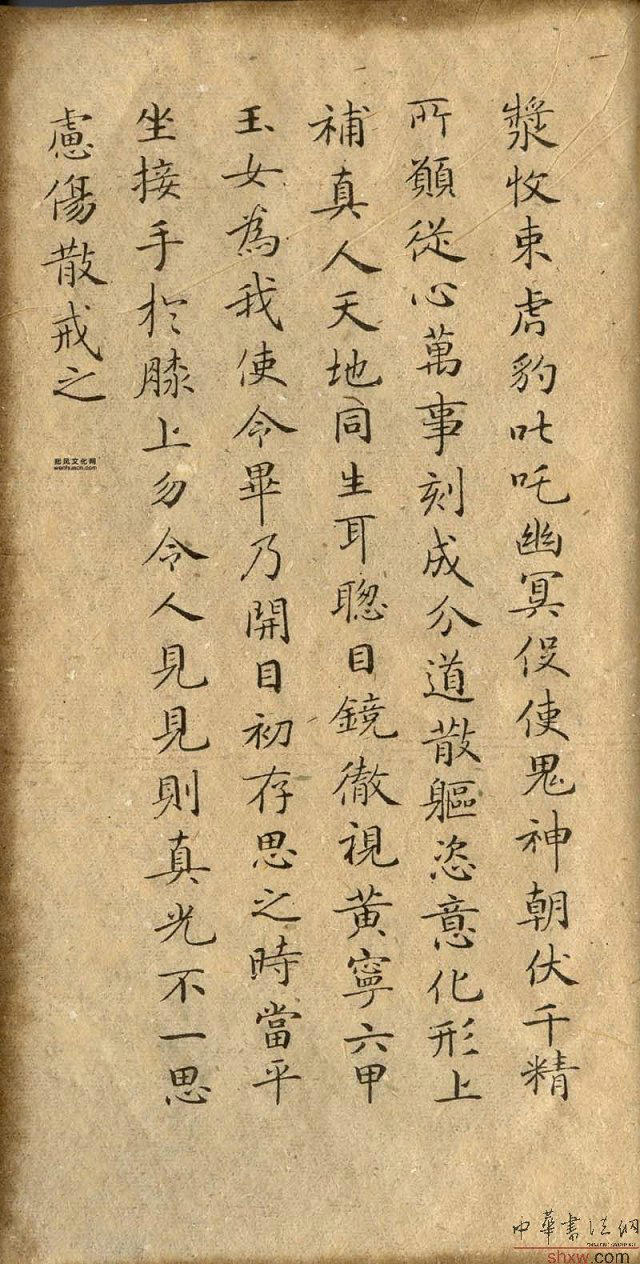 漿收束虎豹叱吒幽冥役使鬼神朝伏千精
所願從心萬事刻成分道散軀恣意化形上
補真人天地同生耳聰目鏡徹視黃寧六甲
玉女為我使令畢乃開目初存思之時當平
坐接手於膝上勿令人見見則真光不一思
慮傷散戒之
起风文化网
wenhuacn.com
中華書法網
shxw.com